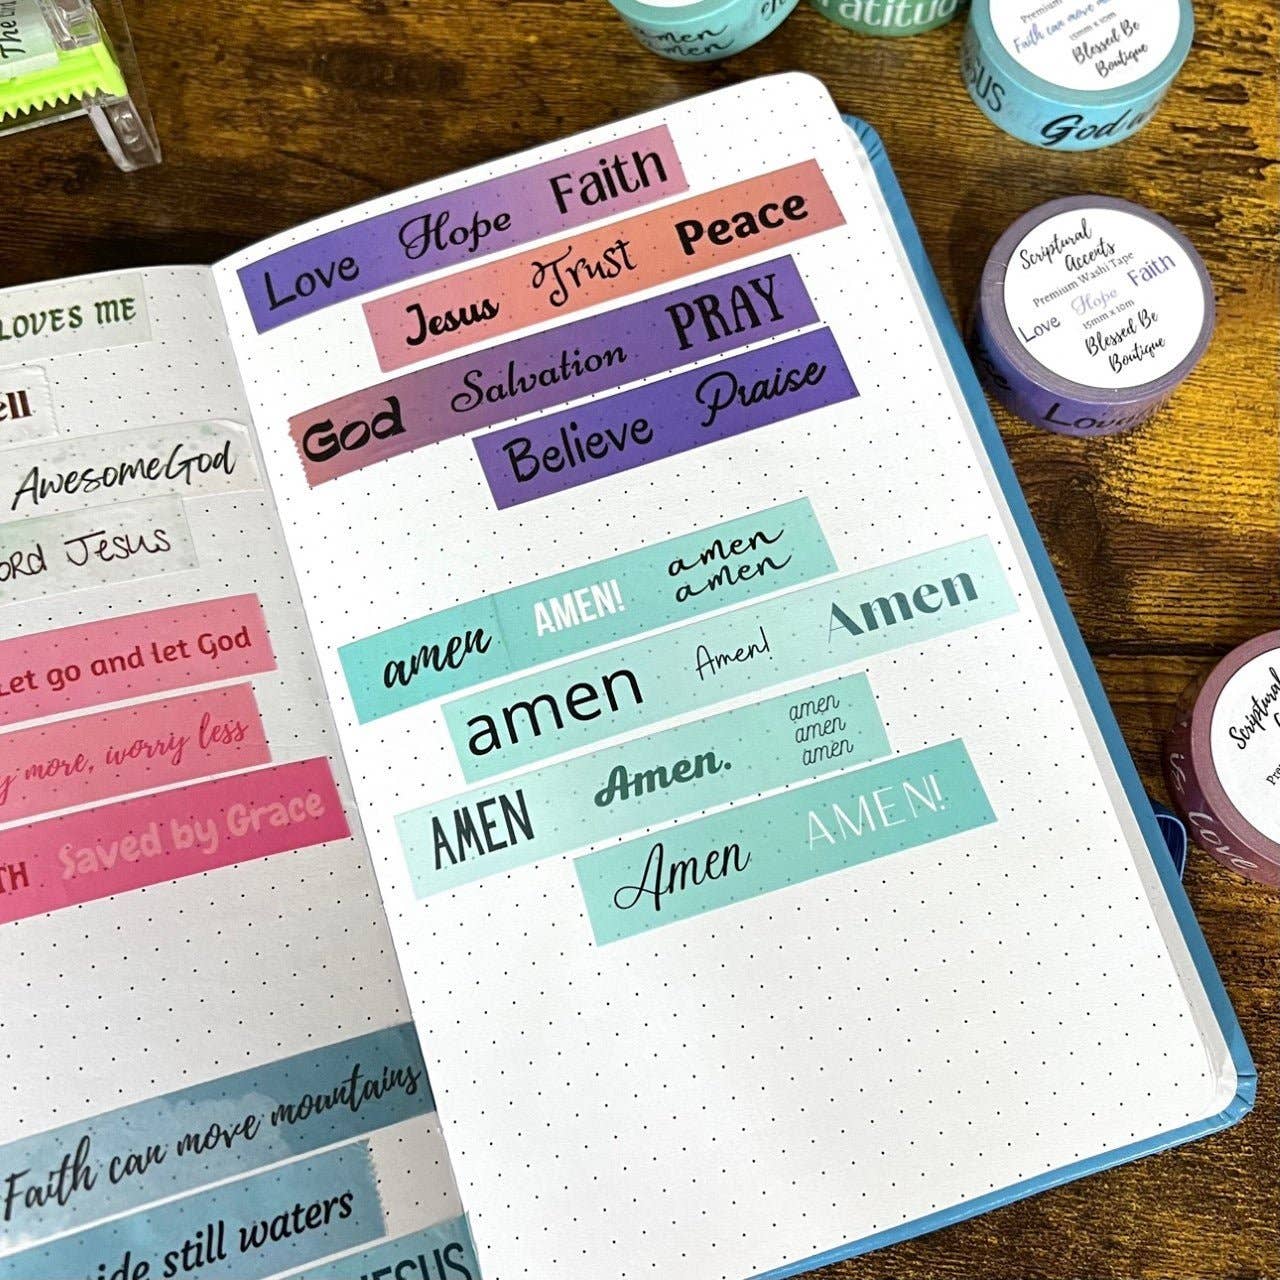 The
LOVES ME
AwesomeGod
Jesus
Let go and let God
more, worry less
Saved by Grace
Faith can move mountains
still waters
JESUS
Love Hope Faith
Jesus Trust Peace
God Salvation PRAY
Believe Praise
amen AMEN! amen
amen
amen Amen! Amen
AMEN Amen. amen
amen
amen
Amen AMEN!
amen
amen
Premium
Faith can move
15mm x 10m
Blessed Be
Boutique
God
Scriptural
Accents
Premium Washi Tape
Love Hope Faith
15mm x 10m
Blessed Be
Boutique
Scriptural
love